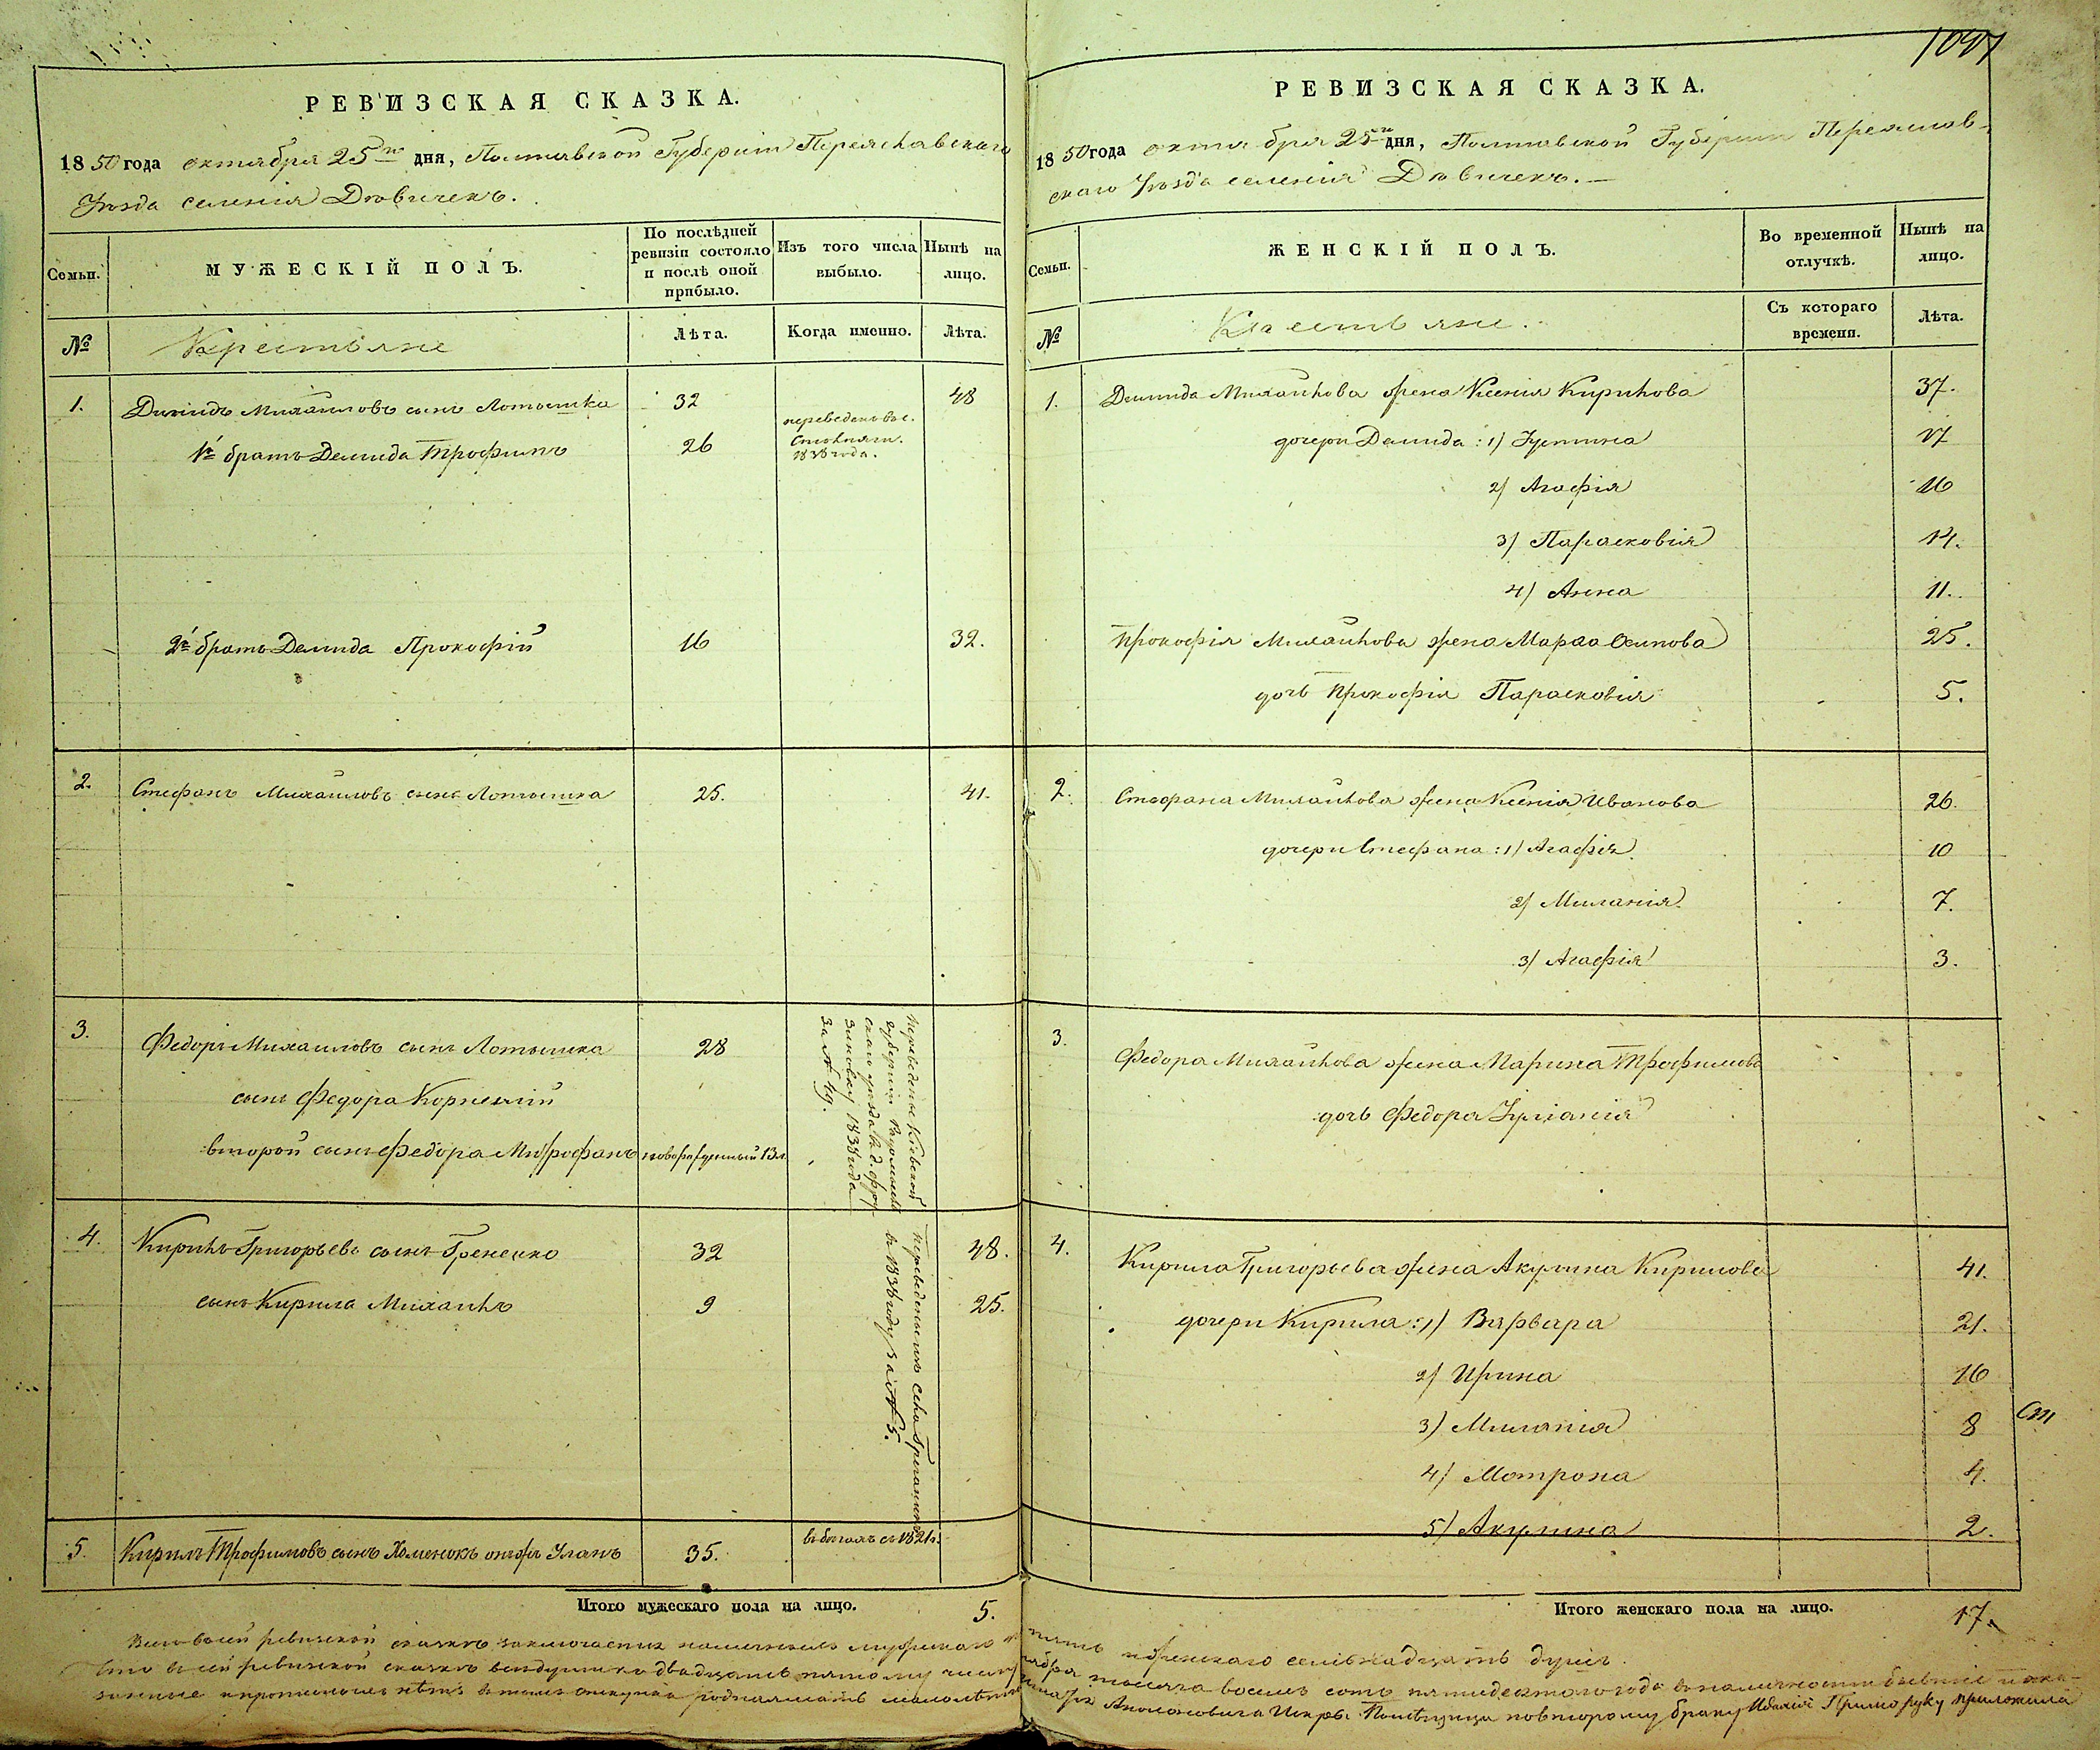 1097
РЕВИЗСКАЯ СКАЗКА.
1850 года октября 25го дня, Полтавской Губернии Переяславскаго
Уѣзда селенія Дѣвичекъ.
Семьи.
МУЖЕСКІЙ ПОЛЪ.
По послѣдней ревизіи состояло и послѣ оной прибыло.
Изъ того числа выбыло.
Нынѣ на лицо.
№
Крестьяне
Лѣта.
Когда именно.
Лѣта.
1. Демидъ Михайловъ сынъ Лотышка 32 48
1й братъ Демида Трофимъ 26 переведенъ
1838 года.
2й братъ Демида Прокофій 16 32.
2. Стефанъ Михайловъ сынъ Лотышка 25. 41.
3. Федоръ Михаиловъ сынъ Лотышка 28
сынъ Федора Корнилій
второй сынъ Федора Митрофанъ новорожденный 13 л.
переведены Кіевской
губерніи Радомысль
скаго уѣзда
Зиновку 1838 года
за № 49.
4. Кирилъ Григорьевъ сынъ Гренечко 32 48.
сынъ Кирила Михаилъ 9 25.
Переведены изъ села
въ 1838 году за № 5.
5. Кирилъ Трофимовъ сынъ Хоменокъ онъ жъ Уланъ 35. въ бѣгахъ съ 1821 г.
Итого мужескаго пола на лицо. 5.
РЕВИЗСКАЯ СКАЗКА.
1850 года октября 25го дня, Полтавской Губерніи Переяслав-
скаго Уѣзда селенія Дѣвичекъ.
Семьи.
ЖЕНСКІЙ ПОЛЪ.
Во временной отлучкѣ.
Нынѣ на лицо.
№
Крестьяне.
Съ котораго времени.
Лѣта.
1. Демида Михайлова жена Ксенія Кирилова 37.
дочери Демида: 1) Устина 17
2) Агафія 16
3) Парасковія 14.
4) Анна 11.
Прокофія Михайлова жена Марфа Осипова 25.
дочь Прокофія Парасковія 5.
2. Стефана Михайлова жена Ксенія Иванова 26.
дочери Стефана: 1) Агафія 10
2) Миланія 7.
3) Агафія 3.
3. Федора Михайлова жена Марина Трофимова
дочь Федора Уліанія
4. Кирила Григорьева жена Акулина Кирилова 41.
дочери Кирила: 1) Варвара 21.
2) Ирина 16
3) Миланія 8
4) Мотрона 4.
5) Акулина 2.
Итого женскаго пола на лицо. 17.
Всего въ сей ревизской сказкѣ заключается наличныхъ мужескаго пять женскаго семьнадцать душъ.
Что въ сей ревизской сказкѣ двадцать пятому числу тысяча восемь сотъ пятидесятого года
руку приложила